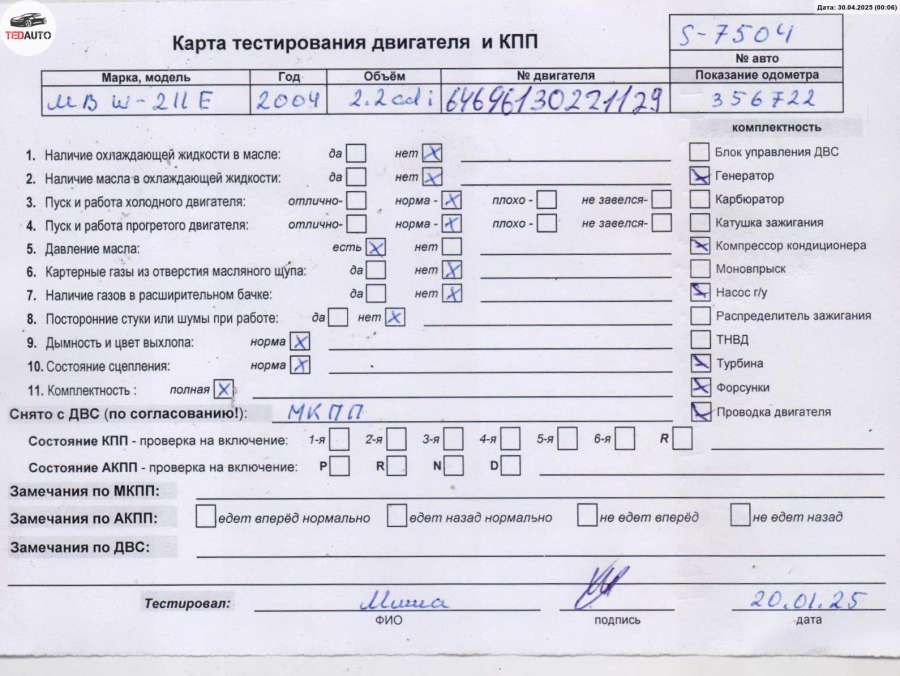 Дата: 30.04.2025 (00:06)
TEDAUTO
Карта тестирования двигателя и КПП
S-7504
№ авто
Марка, модель Год Объём № двигателя Показание одометра
MB W-211 E 2004 2.2cdi 64696130221129 356722
комплектность
1. Наличие охлаждающей жидкости в масле: да нет X Блок управления ДВС
2. Наличие масла в охлаждающей жидкости: да нет X Генератор
3. Пуск и работа холодного двигателя: отлично- норма - X плохо - не завелся- Карбюратор
4. Пуск и работа прогретого двигателя: отлично- норма - X плохо - не завелся- Катушка зажигания
5. Давление масла: есть X нет Компрессор кондиционера
6. Картерные газы из отверстия масляного щупа: да нет X Моновпрыск
7. Наличие газов в расширительном бачке: да нет X Насос г/у
8. Посторонние стуки или шумы при работе: да нет X Распределитель зажигания
9. Дымность и цвет выхлопа: норма X ТНВД
10. Состояние сцепления: норма X Турбина
11. Комплектность : полная X Форсунки
Снято с ДВС (по согласованию!): МКПП Проводка двигателя
Состояние КПП - проверка на включение: 1-я 2-я 3-я 4-я 5-я 6-я R
Состояние АКПП - проверка на включение: P R N D
Замечания по МКПП:
Замечания по АКПП: едет вперёд нормально едет назад нормально не едет вперёд не едет назад
Замечания по ДВС:
Тестировал: Миша 20.01.25
ФИО подпись дата